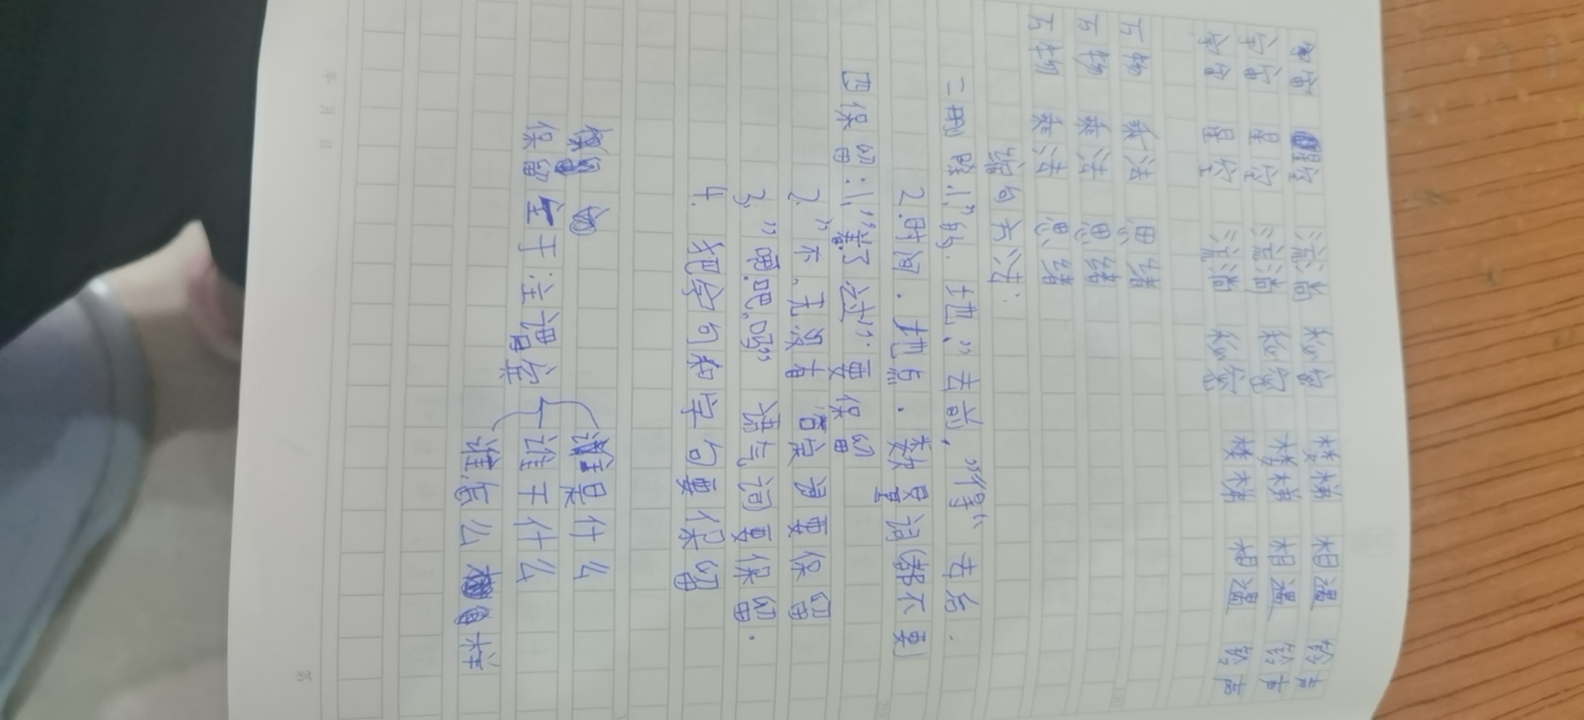 宇宙 星空 流淌 私密 模样 相遇 钟声
宇宙 星空 流淌 私密 模样 相遇 钟声
宇宙 星空 流淌 私密 模样 相遇
万物 乘法 思绪
万物 乘法 思绪
万物 乘法 思绪
缩句方法:
二删除:1,"的、地、"去前,"得"去后.
2.时间.地点.数量词都不要
四保留:1,"着了过"要保留
2."不.无.没有 否定词要保留
3,"呢.吧.吗" 语气词要保留.
4. 把字句和字句要保留
保留
保留主干:主谓宾
谁是什么
谁干什么
谁怎么样
年 月 日
第